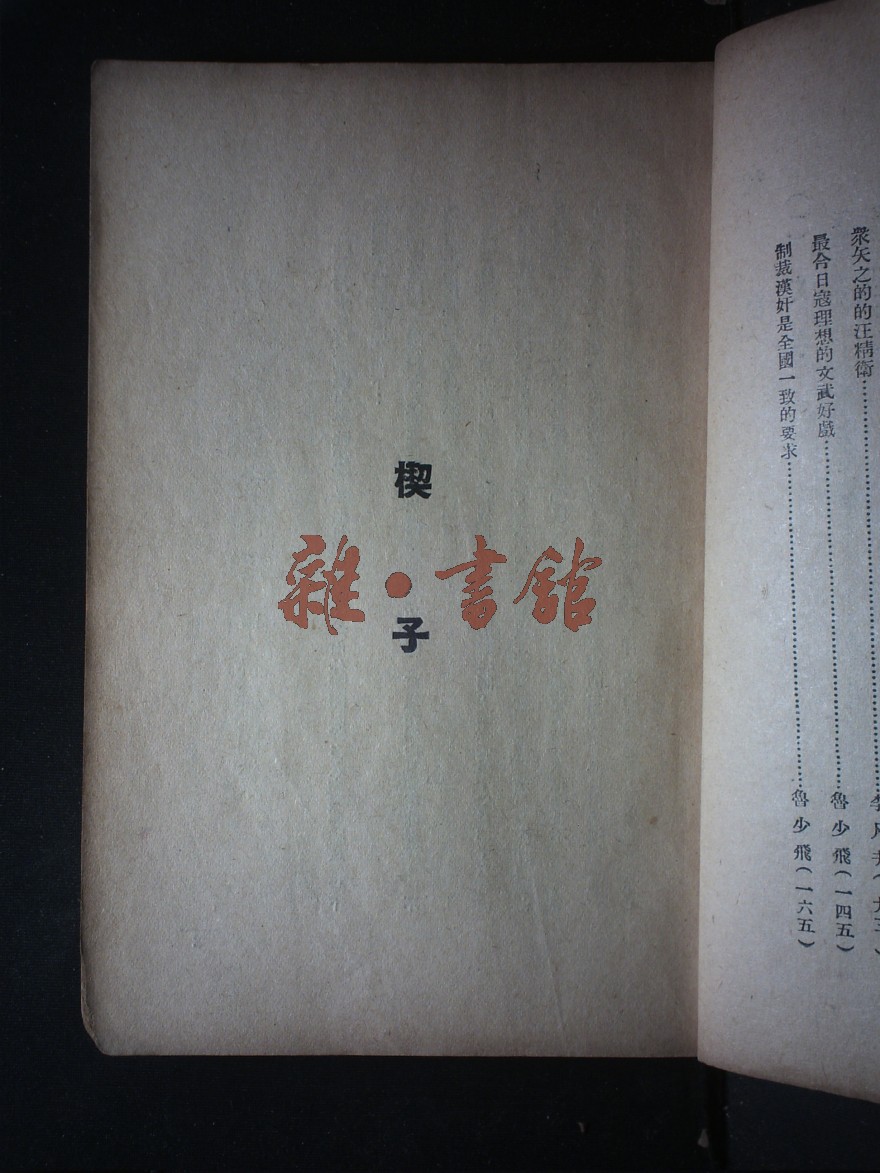 衆矢之的的汪精衛
最令日寇理想的文武好戲……魯少飛(一四五)
制裁漢奸是全國一致的要求……魯少飛(一六五)
楔子
雜·書館